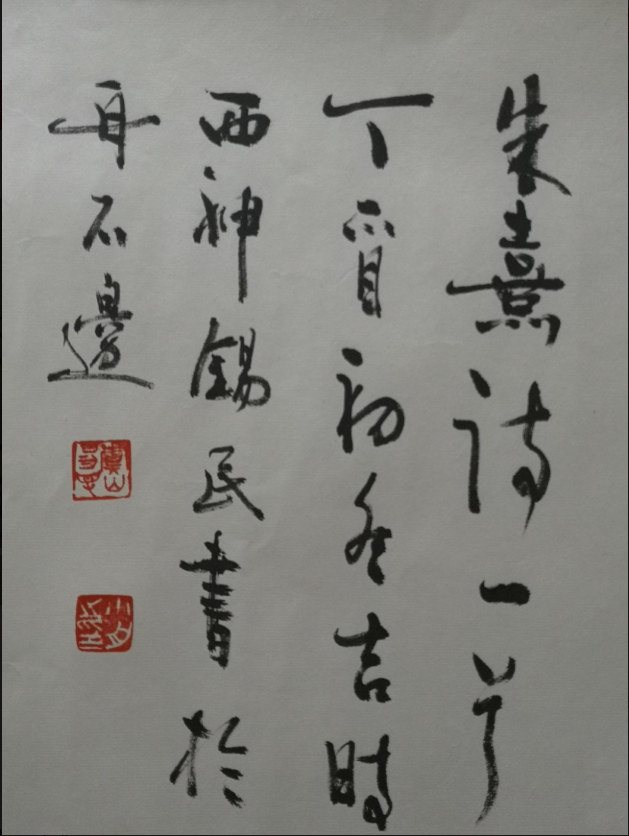 朱熹诗一首
丁酉初冬吉時
西神錫民書於
石邊